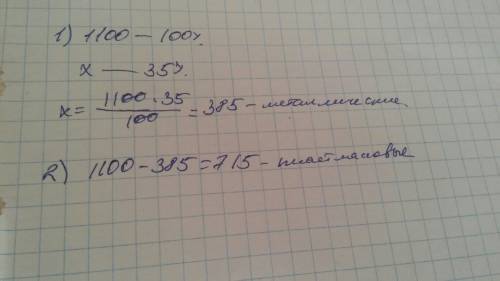 1) 1100 — 100%.
x — 35%.
x = 1100 · 35 / 100 = 385 - металлические.
2) 1100 - 385 = 715 - пластмасовые